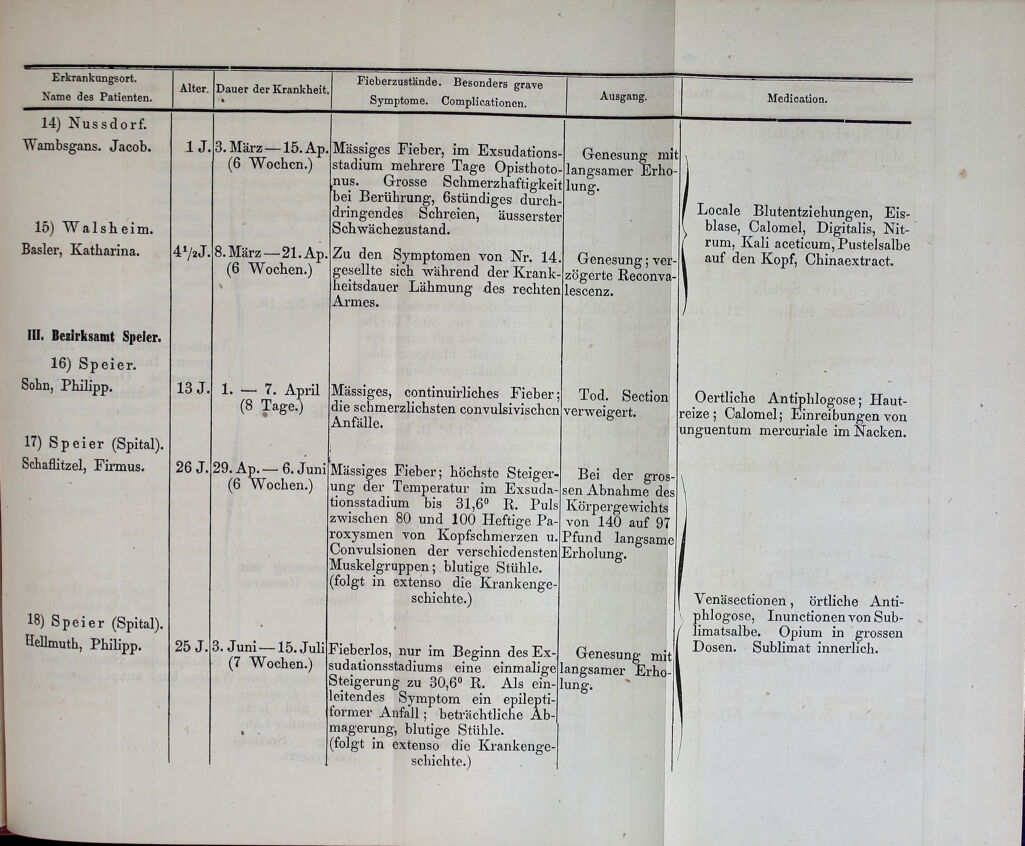 Erkrankungsort.
Name des Patienten.
Alter.
Dauer der Krankheit.
Fieberzustände. Besonders grave
Symptome. Complicationen.
Ausgang.
Medication.
14) Nussdorf.
Wambsgans. Jacob.
1 J.
3. März—15. Ap.
(6 Wochen.)
Mässiges Fieber, im Exsudations-
stadium mehrere Tage Opisthoto-
nus. Grosse Schmerzhaftigkeit
bei Berührung, 6stündiges durch-
dringendes Schreien, äusserster
Schwächezustand.
Genesung mit
langsamer Erho-
lung.
15) Walsheim.
Basler, Katharina.
4½J.
8. März—21. Ap.
(6 Wochen.)
Zu den Symptomen von Nr. 14.
gesellte sich während der Krank-
heitsdauer Lähmung des rechten
Armes.
Genesung; ver-
zögerte Reconva-
lescenz.
Locale Blutentziehungen, Eis-
blase, Calomel, Digitalis, Nit-
rum, Kali aceticum, Pustelsalbe
auf den Kopf, Chinaextract.
III. Bezirksamt Speier.
16) Speier.
Sohn, Philipp.
13 J.
1. — 7. April
(8 Tage.)
Mässiges, continuirliches Fieber;
die schmerzlichsten convulsivischen
Anfälle.
Tod. Section
verweigert.
Oertliche Antiphlogose; Haut-
reize; Calomel; Einreibungen von
unguentum mercuriale im Nacken.
17) Speier (Spital).
Schaflitzel, Firmus.
26 J.
29. Ap.— 6. Juni
(6 Wochen.)
Mässiges Fieber; höchste Steiger-
ung der Temperatur im Exsuda-
tionsstadium bis 31,6⁰ R. Puls
zwischen 80 und 100 Heftige Pa-
roxysmen von Kopfschmerzen u.
Convulsionen der verschiedensten
Muskelgruppen; blutige Stühle.
(folgt in extenso die Krankenge-
schichte.)
Bei der gros-
sen Abnahme des
Körpergewichts
von 140 auf 97
Pfund langsame
Erholung.
18) Speier (Spital).
Hellmuth, Philipp.
25 J.
3. Juni—15. Juli
(7 Wochen.)
Fieberlos, nur im Beginn des Ex-
sudationsstadiums eine einmalige
Steigerung zu 30,6⁰ R. Als ein-
leitendes Symptom ein epilepti-
former Anfall; beträchtliche Ab-
magerung, blutige Stühle.
(folgt in extenso die Krankenge-
schichte.)
Genesung mit
langsamer Erho-
lung.
Venäsectionen, örtliche Anti-
phlogose, Inunctionen von Sub-
limatsalbe. Opium in grossen
Dosen. Sublimat innerlich.